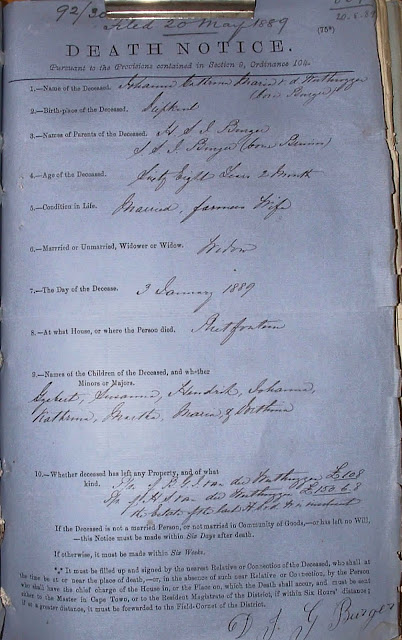 92/30
Filed 20 May 1889
(75*)
DEATH NOTICE.
Pursuant to the Provisions contained in Section 9, Ordinance 104.
1.—Name of the Deceased. Johanna Maria v d
(born Burger)
2.—Birth-place of the Deceased.
3.—Names of Parents of the Deceased. Burger
Burger (born
4.—Age of the Deceased. Sixty Eight Years 2 Month
5.—Condition in Life. Married, farmers Wife
6.—Married or Unmarried, Widower or Widow. Widow
7.—The Day of the Decease. 3 January 1889
8.—At what House, or where the Person died. Rietfontein
9.—Names of the Children of the Deceased, and whether
Minors or Majors.
Susanna, Hendrik, Johanna,
Martha, Maria &
10.—Whether deceased has left any Property, and of what
kind. van der £108
van der £150.6.8
the estate of the late
If the Deceased is not a married Person, or not married in Community of Goods,—or has left no Will,
—this Notice must be made within Six Days after death.
If otherwise, it must be made within Six Weeks.
*** It must be filled up and signed by the nearest Relative or Connection of the Deceased, who shall at
the time be at or near the place of death,—or, in the absence of such near Relative or Connection, by the Person
who shall have the chief charge of the House in, or the Place on, which the Death shall occur, and must be sent
either to the Master in Cape Town, or to the Resident Magistrate of the District, if within Six Hours' distance;
if at a greater distance, it must be forwarded to the Field-Cornet of the District.
D. J. G Burger